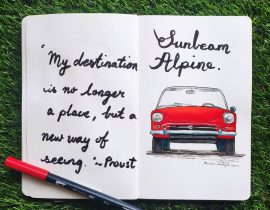 "My destination
is no longer
a place, but a
new way of
seeing." ~ Proust
Sunbeam
Alpine.